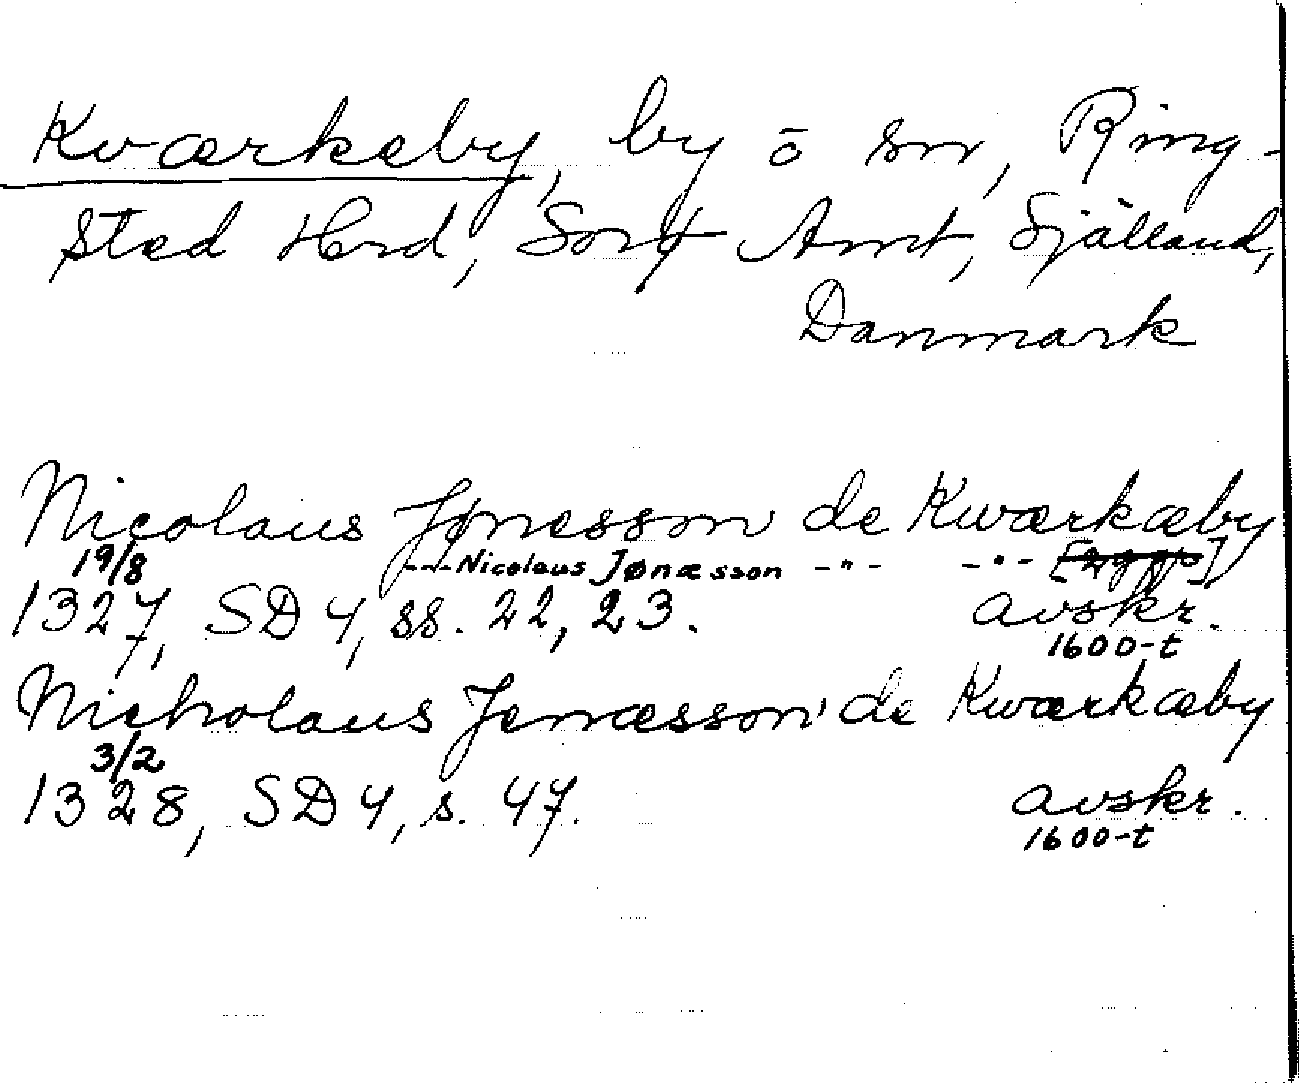 Kværkeby, by o sn, Ring-
sted Hrd, Sorø Amt, Själland,
Danmark
Nicolaus Jønesson de Kwærkæby
19/8 ---Nicolaus Jønæsson -"- -"-
1327, SD 4, ss. 22, 23. avskr.
1600-t
Nicholaus Jenæsson de Kwærkæby
3/2
1328, SD 4, s. 47. avskr.
1600-t